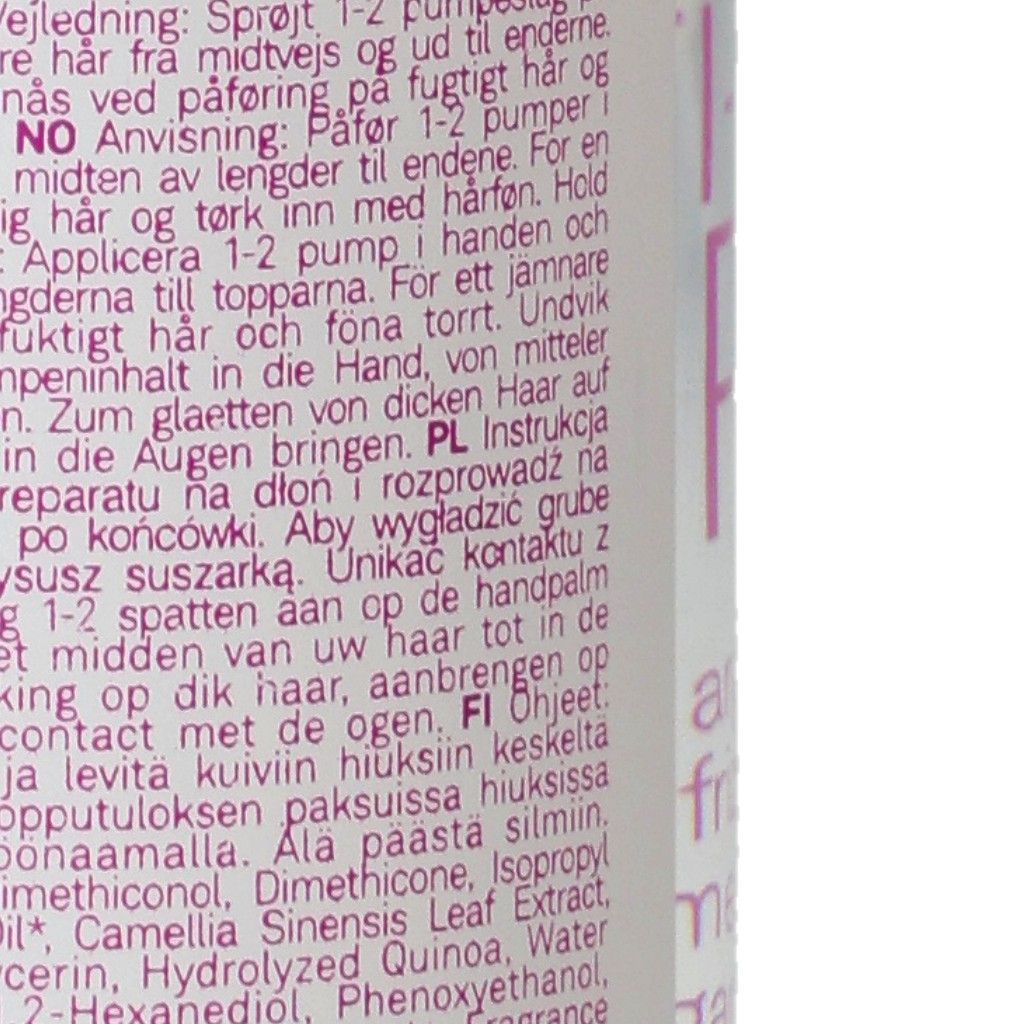 ejledning: Sprøjt 1-2
re hår fra midtvejs og ud til enderne.
nås ved påføring på fugtigt hår og
NO Anvisning: Påfør 1-2 pumper i
midten av lengder til endene. For en
ig hår og tørk inn med hårføn. Hold
: Applicera 1-2 pump i handen och
ngderna till topparna. För ett jämnare
fuktigt hår och föna torrt. Undvik
npeninhalt in die Hand, von mitteler
n. Zum glaetten von dicken Haar auf
in die Augen bringen. PL Instrukcja
reparatu na dłoń i rozprowadź na
po końcówki. Aby wygładzić grube
ysusz suszarką. Unikać kontaktu z
g 1-2 spatten aan op de handpalm
et midden van uw haar tot in de
king op dik haar, aanbrengen op
contact met de ogen. FI Ohjeet:
ja levitä kuiviin hiuksiin keskeltä
opputuloksen paksuissa hiuksissa
öönaamalla. Älä päästä silmiin.
imethiconol, Dimethicone, Isopropyl
Oil*, Camellia Sinensis Leaf Extract,
ycerin, Hydrolyzed Quinoa, Water
1,2-Hexanediol, Phenoxyethanol,
Fragrance